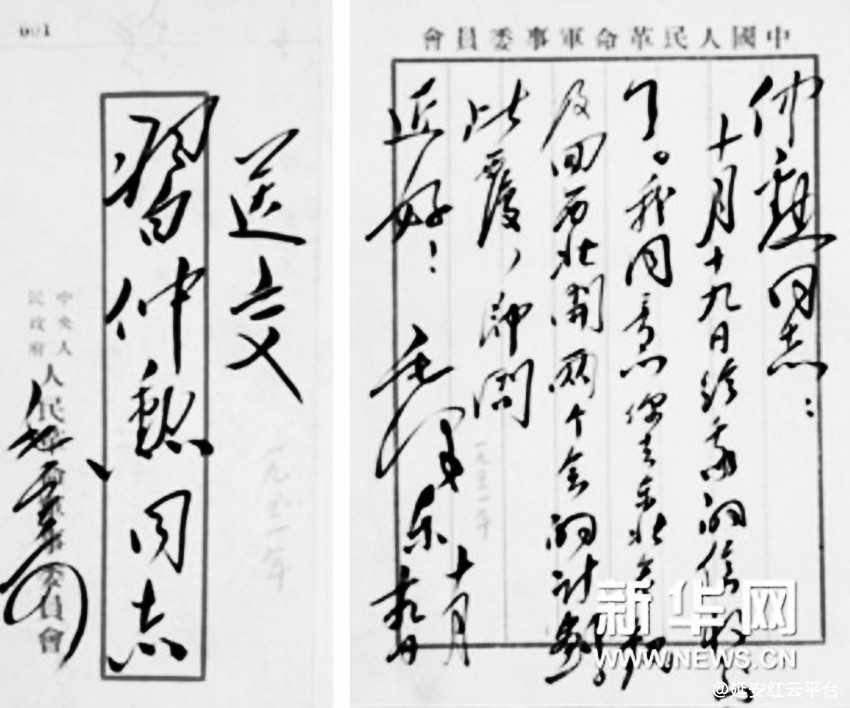 001
送交
習仲勳同志
中央人
民政府
人民革命軍事委員會
一九五一年
中國人民革命軍事委員會
仲勳同志：
十月十九日給我的信收到
了。我同意你去东北参观
及回西北開兩个会的計劃。
此覆，即問
近好！
毛泽东
十月
一九五一年
新华网
WWW.NEWS.CN
@延安红云平台